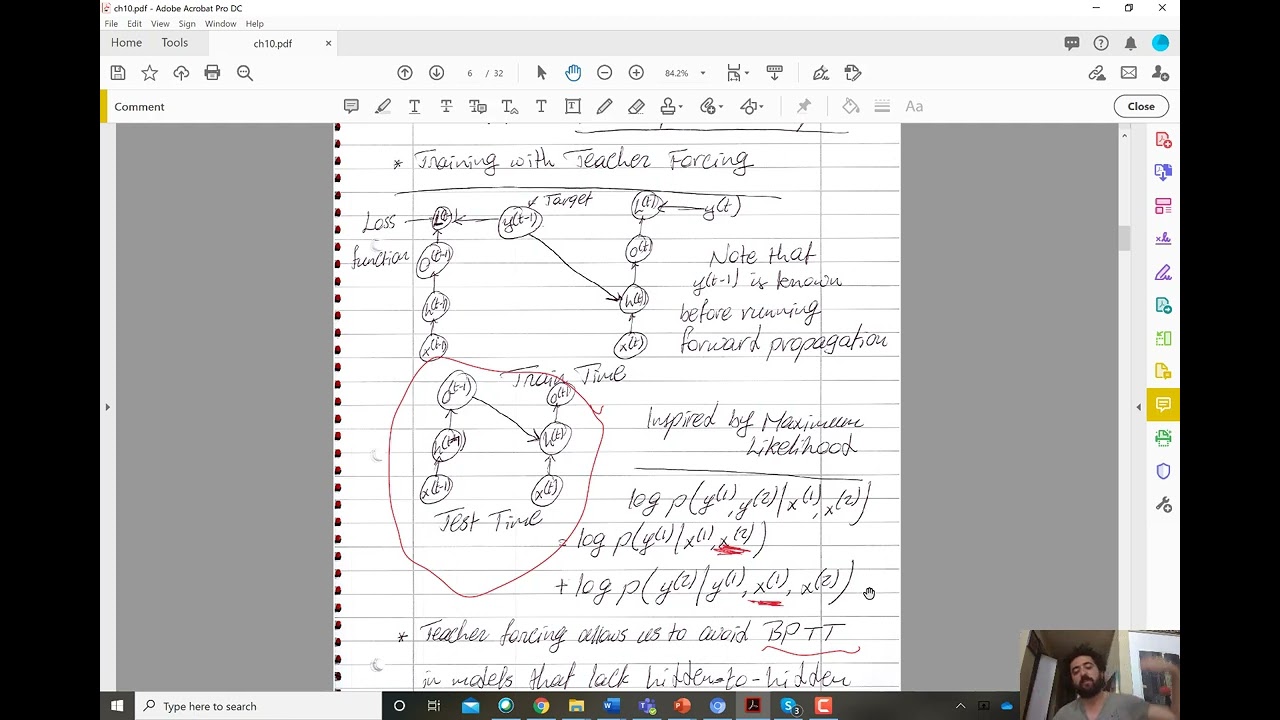 ch10.pdf - Adobe Acrobat Pro DC
File Edit View Sign Window Help
Home Tools ch10.pdf ×
6 / 32 84.2%
Comment Close
* Training with Teacher Forcing
Loss function
L(t-1)
y(t-1)
Target
L(t)
y(t)
o(t-1)
o(t)
h(t-1)
h(t)
x(t-1)
x(t)
Note that
y(t-1) is known
before running
forward propagation
Train Time
o(t-1)
o(t)
h(t-1)
h(t)
x(t-1)
x(t)
Test Time
Inspired by Maximum
Likelihood
log p(y(1), y(2) | x(1), x(2))
= log p(y(1) | x(1), x(2))
+ log p(y(2) | y(1), x(1), x(2))
* Teacher forcing allows us to avoid BPTT
in models that lack hidden-to-hidden
Type here to search